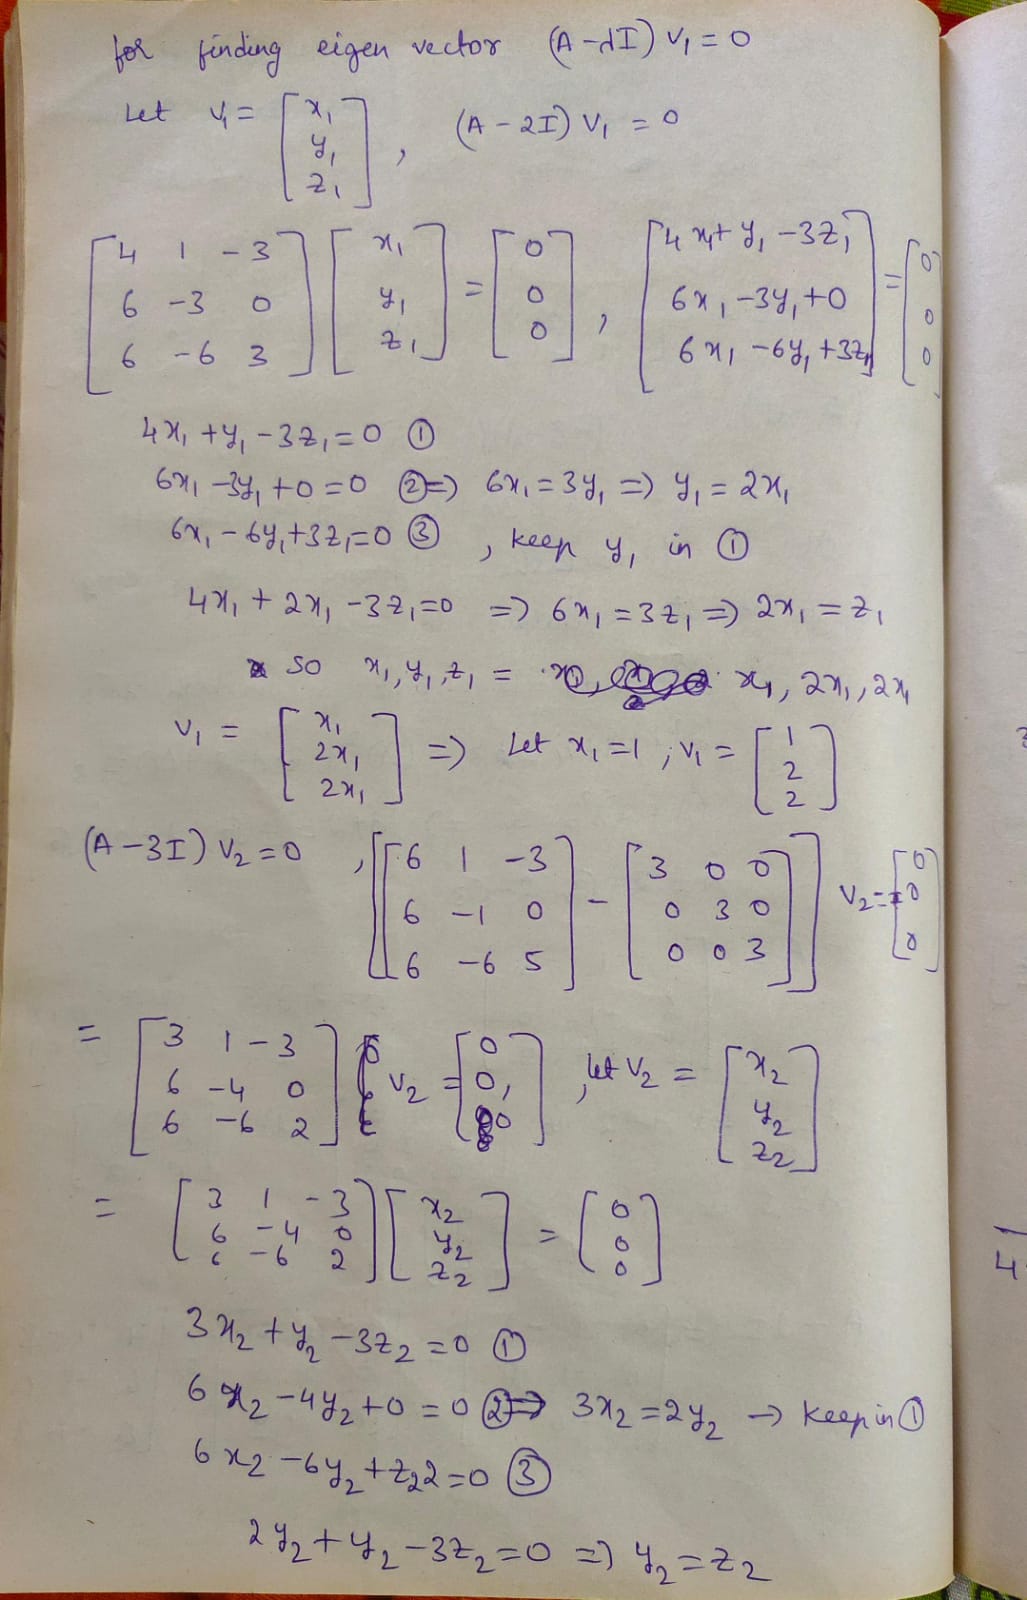 for finding eigen vector (A-λI) V₁ = 0
Let V₁ = [x₁ y₁ z₁], (A-2I) V₁ = 0
[4 1 -3; 6 -3 0; 6 -6 3] [x₁ y₁ z₁] = [0 0 0], [4x₁+y₁-3z₁; 6x₁-3y₁+0; 6x₁-6y₁+3z₁] = [0 0 0]
4x₁+y₁-3z₁=0 ①
6x₁-3y₁+0=0 ②=> 6x₁=3y₁ => y₁=2x₁
6x₁-6y₁+3z₁=0 ③, keep y₁ in ①
4x₁+2x₁-3z₁=0 => 6x₁=3z₁ => 2x₁=z₁
so x₁,y₁,z₁ = x₁, 2x₁, 2x₁
V₁ = [x₁ 2x₁ 2x₁] => Let x₁=1, V₁ = [1 2 2]
(A-3I) V₂=0, [[6 1 -3; 6 -1 0; 6 -6 5] - [3 0 0; 0 3 0; 0 0 3]] V₂ = [0 0 0]
= [3 1 -3; 6 -4 0; 6 -6 2] V₂ = [0 0, 0], let V₂ = [x₂ y₂ z₂]
= [3 1 -3; 6 -4 0; 6 -6 2] [x₂ y₂ z₂] = [0 0 0]
3x₂+y₂-3z₂=0 ①
6x₂-4y₂+0=0 ②=> 3x₂=2y₂ → keep in ①
6x₂-6y₂+z₂2=0 ③
2y₂+y₂-3z₂=0 => y₂=z₂
4